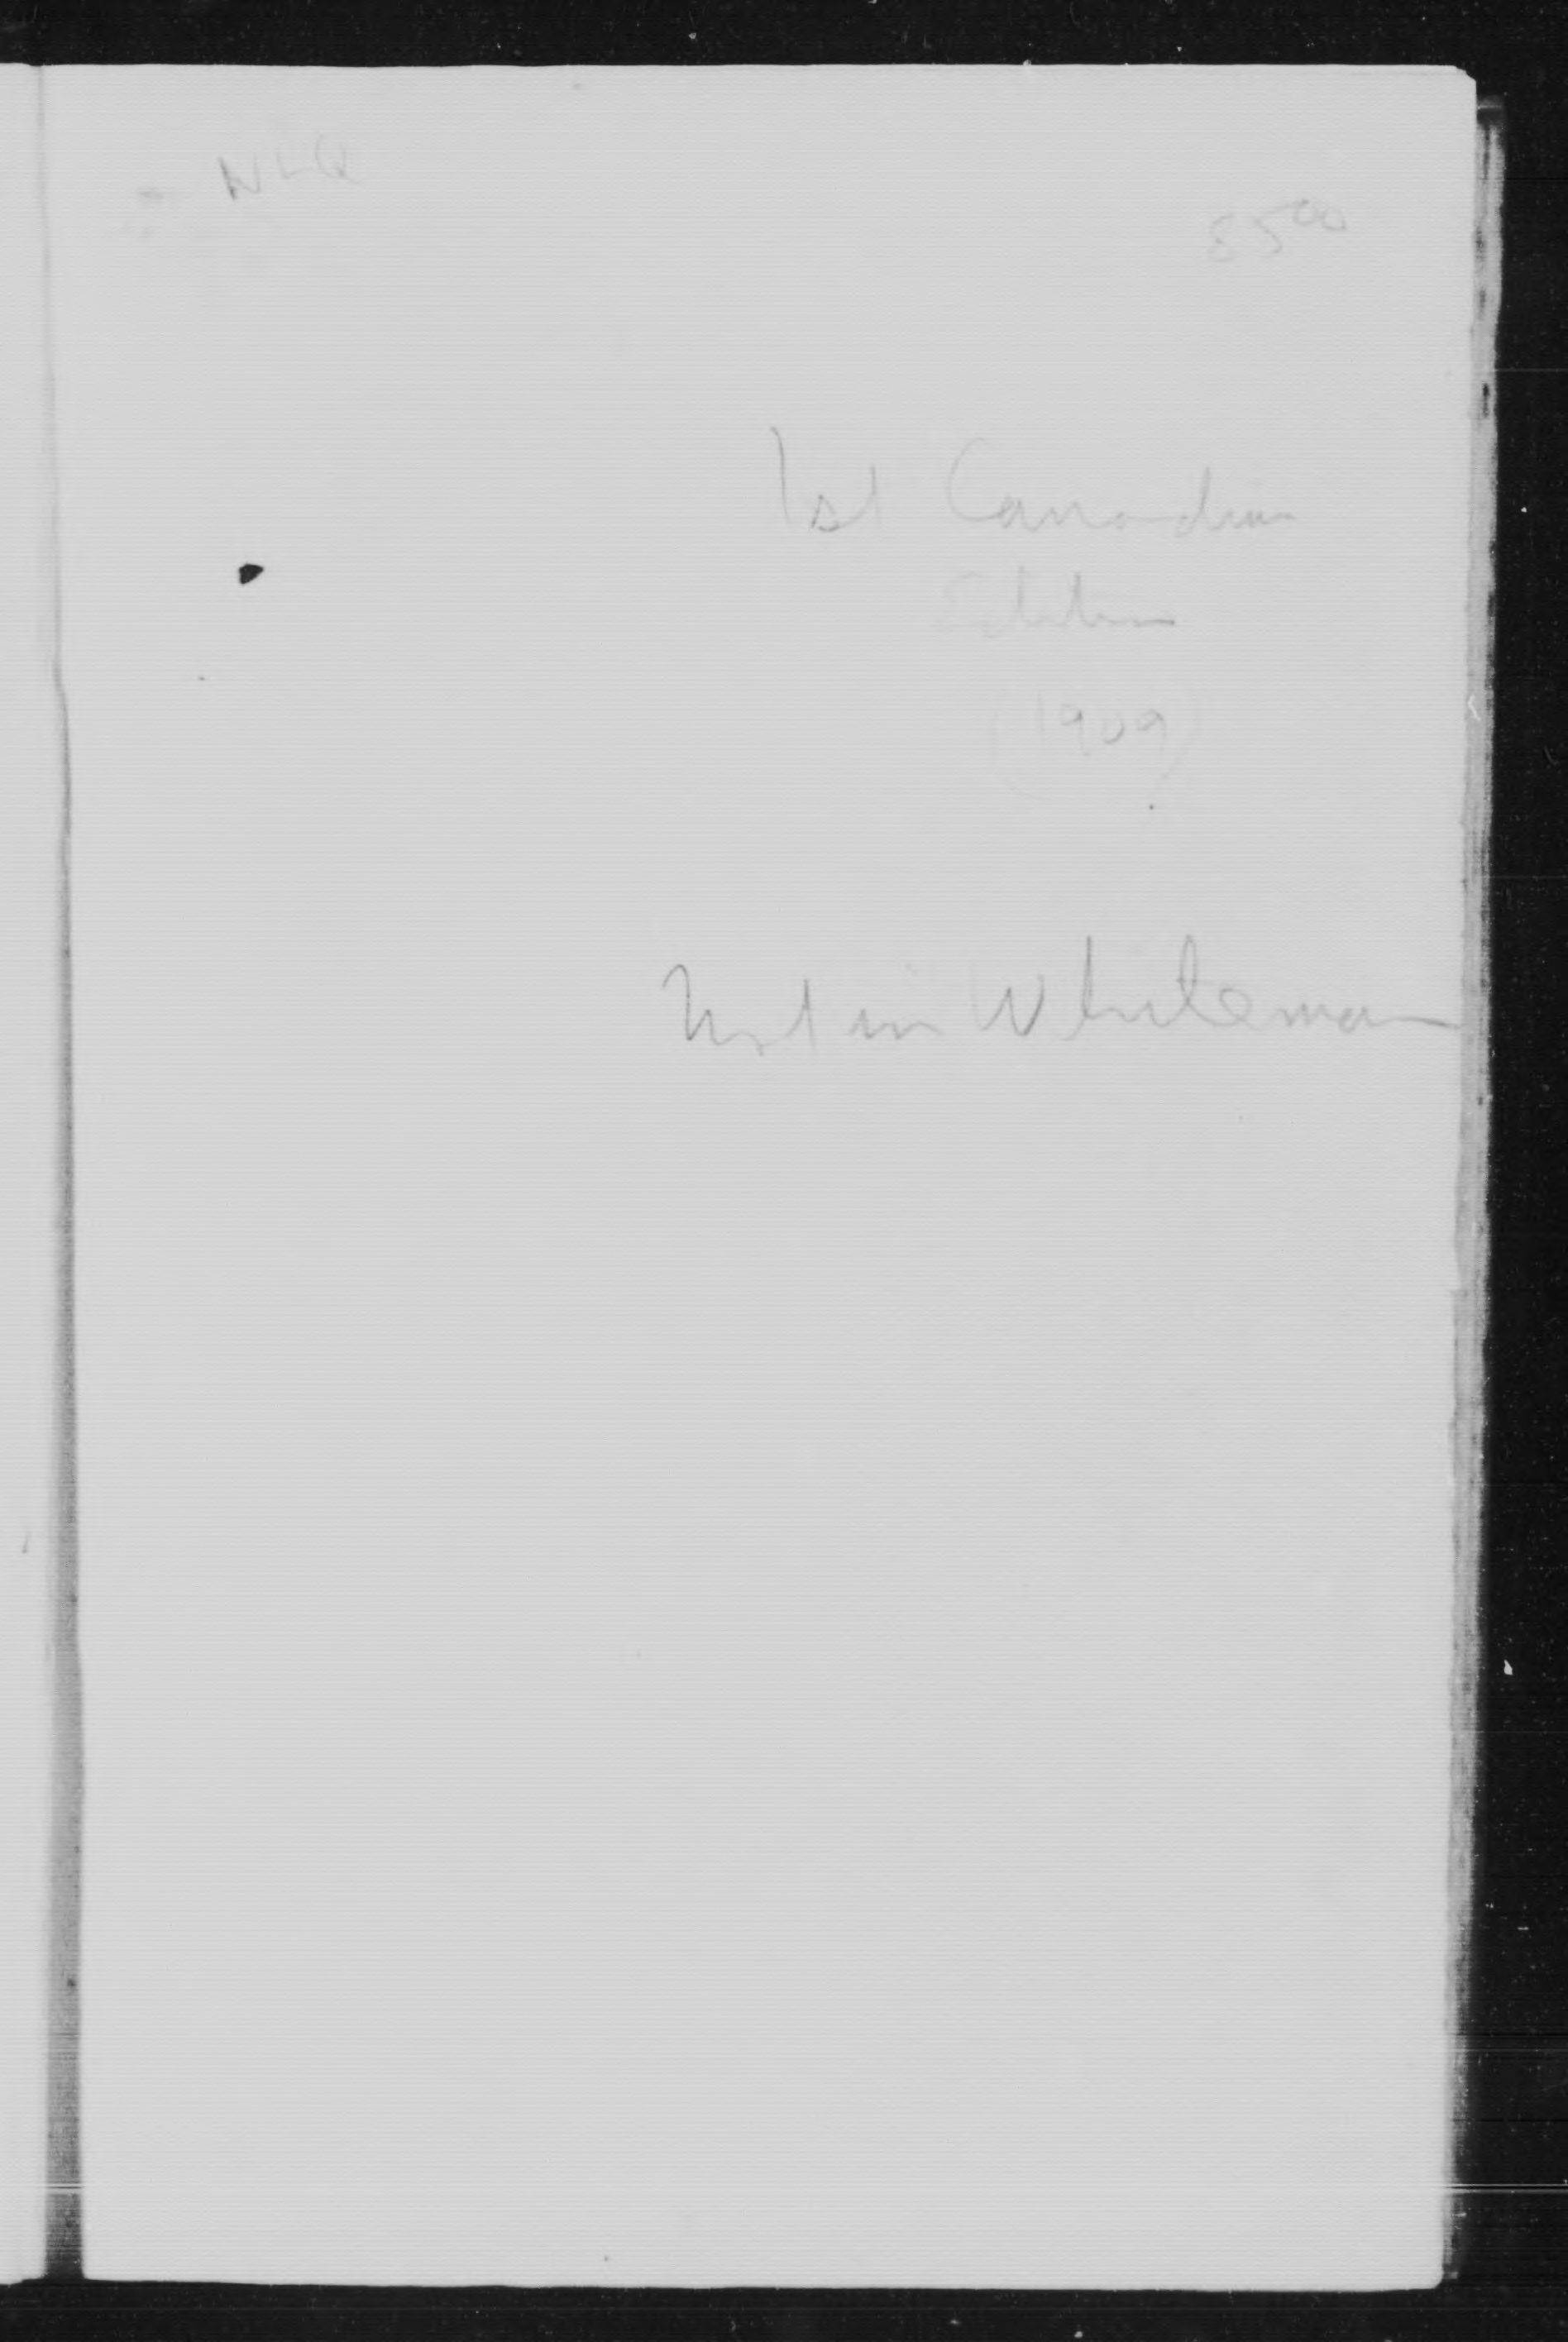 NLQ
55⁰⁰
1st Canadian
Edition
(1909)
Not in Whiteman